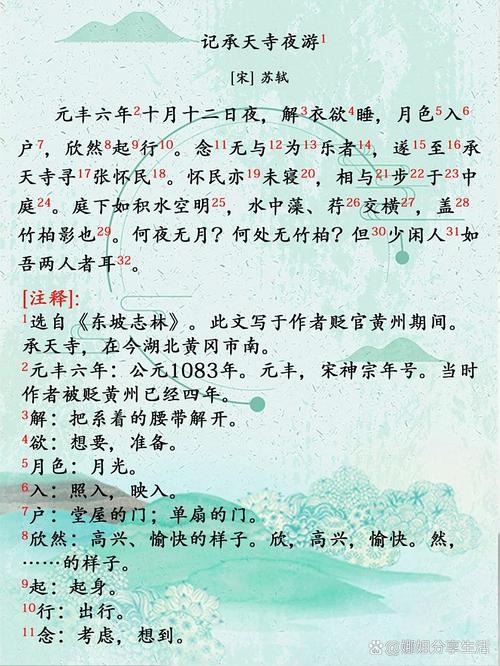 记承天寺夜游1
[宋] 苏轼
元丰六年2十月十二日夜，解3衣欲4睡，月色5入6
户7，欣然8起9行10。念11无与12为13乐者14，遂15至16承
天寺寻17张怀民18。怀民亦19未寝20，相与21步22于23中
庭24。庭下如积水空明25，水中藻、荇26交横27，盖28
竹柏影也29。何夜无月？何处无竹柏？但30少闲人31如
吾两人者耳32。
[注释]：
1选自《东坡志林》。此文写于作者贬官黄州期间。
承天寺，在今湖北黄冈市南。
2元丰六年：公元1083年。元丰，宋神宗年号。当时
作者被贬黄州已经四年。
3解：把系着的腰带解开。
4欲：想要，准备。
5月色：月光。
6入：照入，映入。
7户：堂屋的门；单扇的门。
8欣然：高兴、愉快的样子。欣，高兴，愉快。然，
……的样子。
9起：起身。
10行：出行。
11念：考虑，想到。
百家号@娜姐分享生活